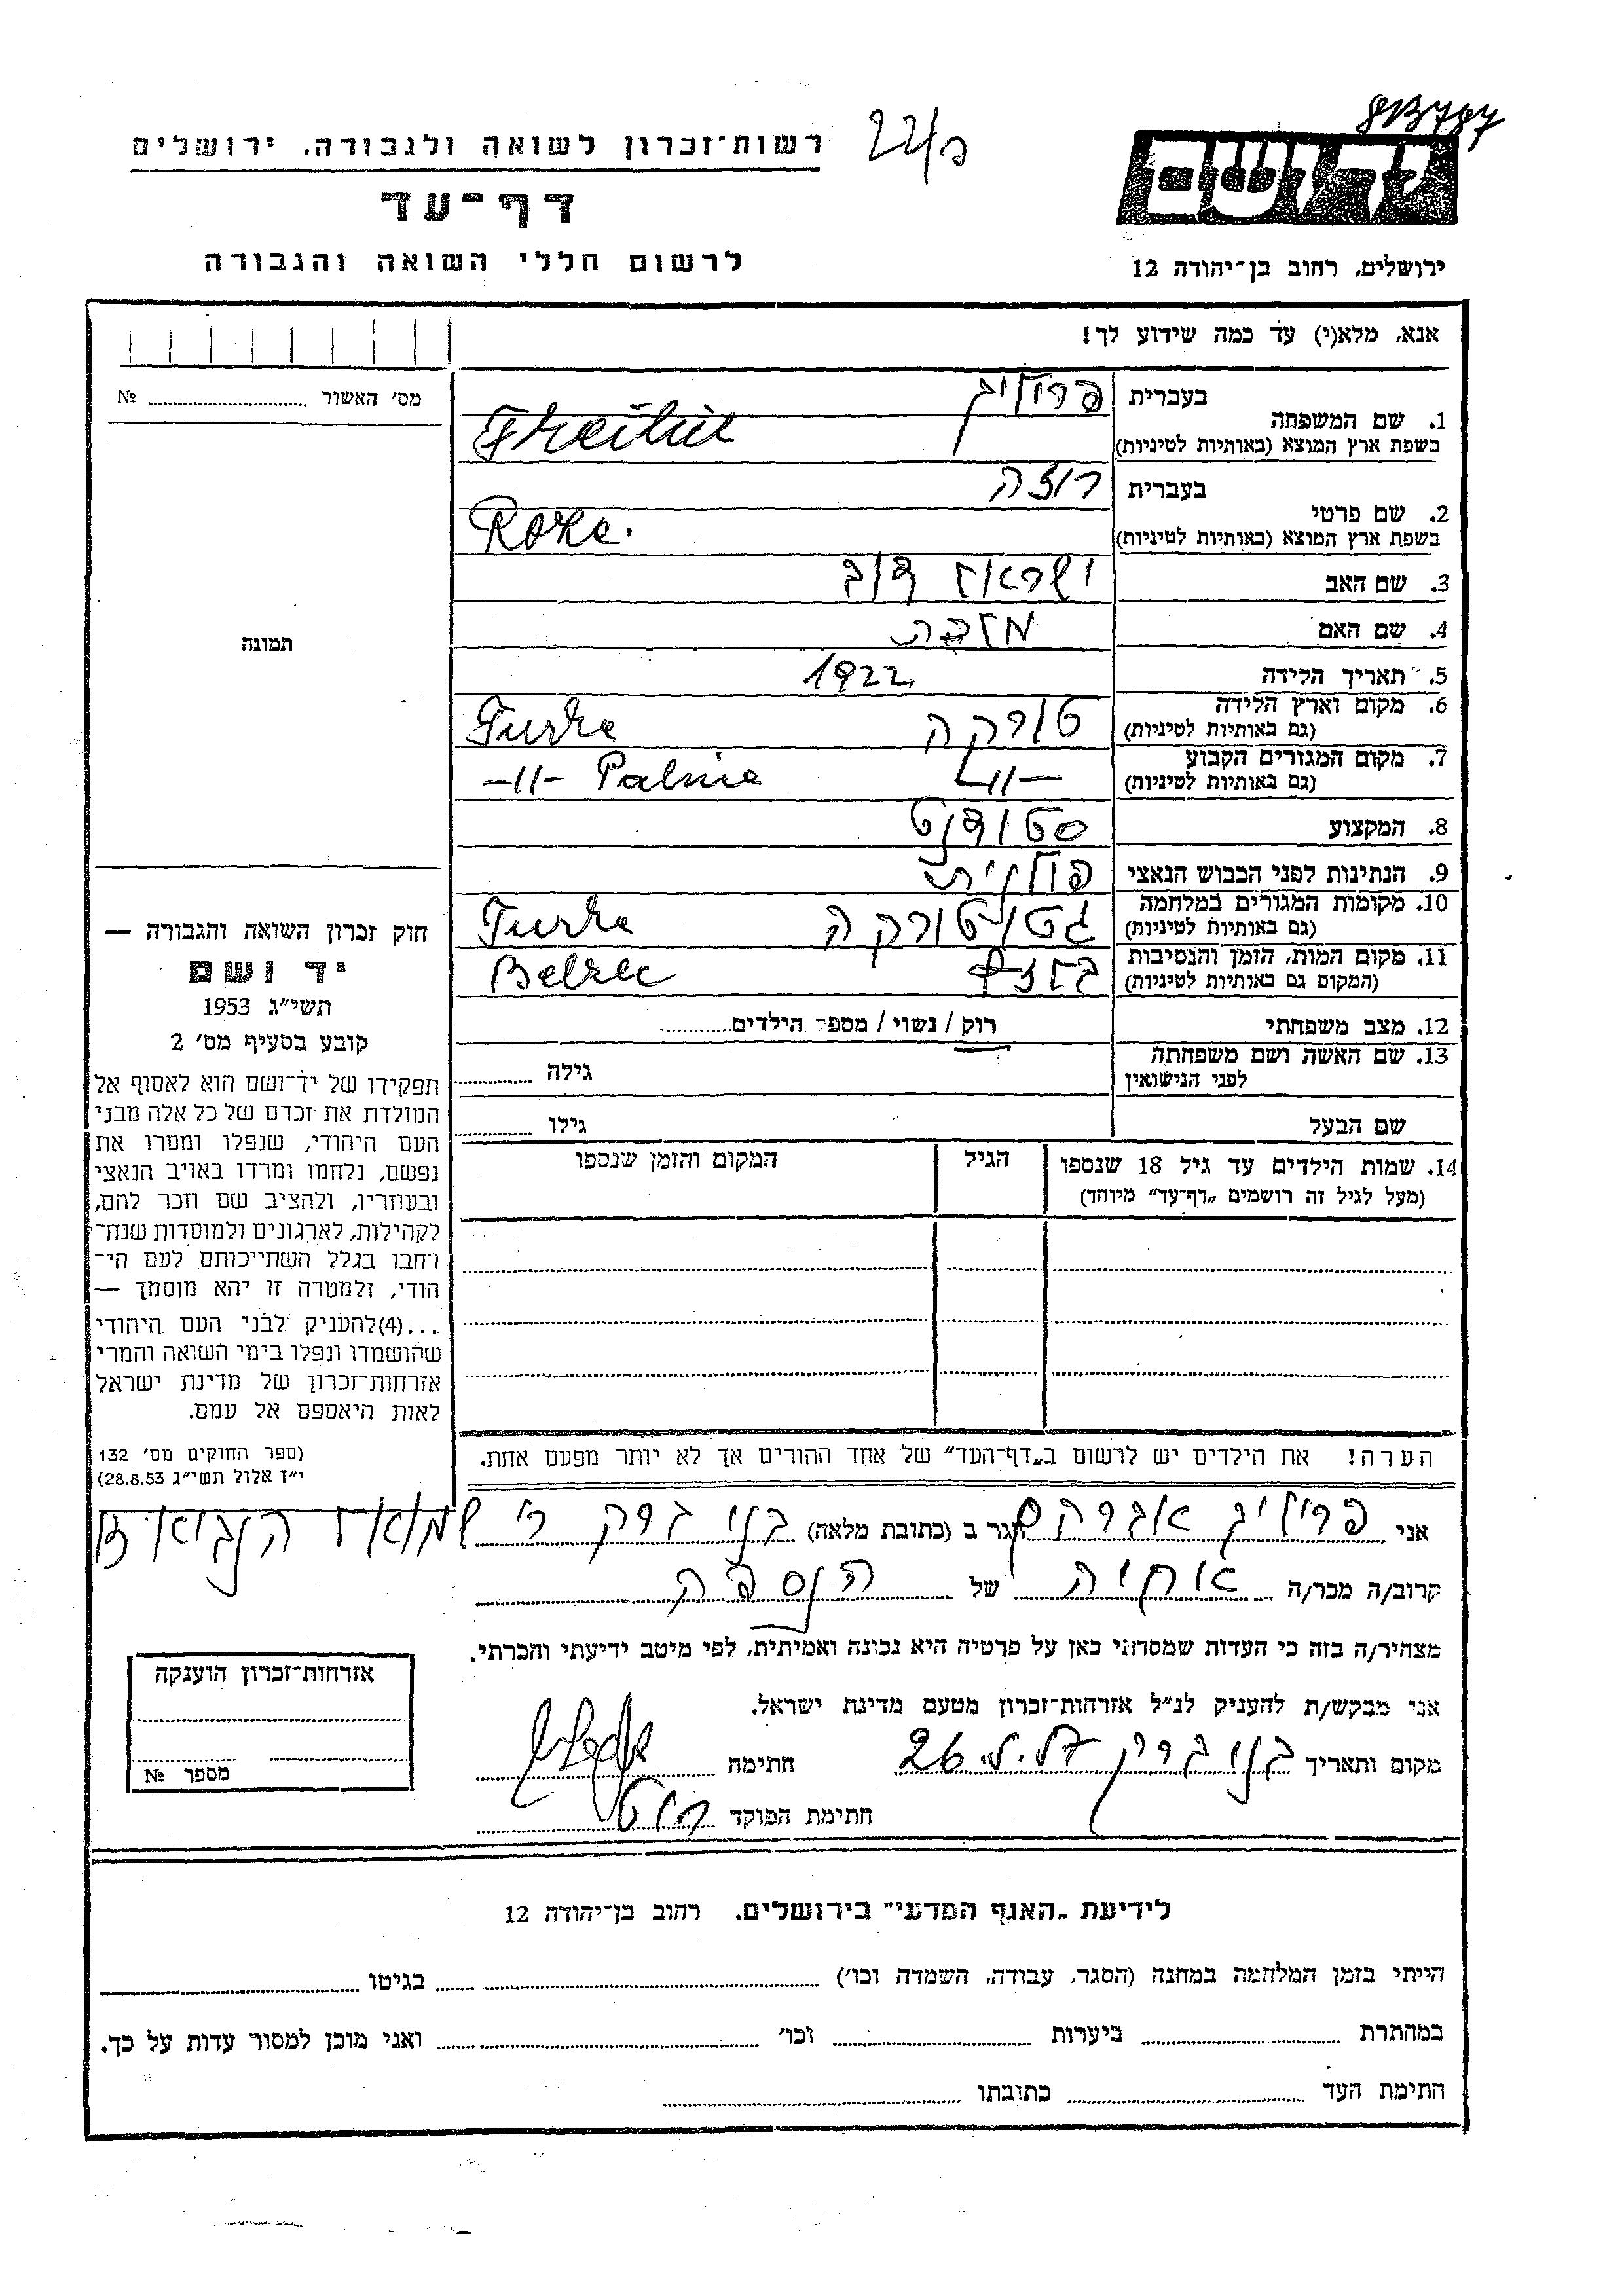 רשות־זכרון לשואה ולגבורה, ירושלים
דף־עד
לרשום חללי השואה והגבורה
יד ושם
ירושלים, רחוב בן־יהודה 12
אנא, מלא(י) עד כמה שידוע לך!
מס׳ האשור № 
תמונה
1. שם המשפחה בעברית
בשפת ארץ המוצא (באותיות לטיניות)
2. שם פרטי בעברית רוזה
בשפת ארץ המוצא (באותיות לטיניות)
3. שם האב ישראל דוב
4. שם האם מלכה
5. תאריך הלידה 1922
6. מקום וארץ הלידה טורקה Turka
(גם באותיות לטיניות)
7. מקום המגורים הקבוע -״- -״-
(גם באותיות לטיניות)
8. המקצוע סטודנט
9. הנתינות לפני הכבוש הנאצי פולנית
10. מקומות המגורים במלחמה גטו טורקה Turka
(גם באותיות לטיניות)
11. מקום המות, הזמן והנסיבות Belzec
(המקום גם באותיות לטיניות)
12. מצב משפחתי רוק / נשוי / מספר הילדים
13. שם האשה ושם משפחתה גילה
לפני הנישואין
שם הבעל גילו
14. שמות הילדים עד גיל 18 שנספו הגיל המקום והזמן שנספו
(מעל לגיל זה רושמים „דף־עד״ מיוחד)
הערה! את הילדים יש לרשום ב„דף־העד״ של אחד ההורים אך לא יותר מפעם אחת.
חוק זכרון השואה והגבורה —
יד ושם
תשי״ג 1953
קובע בסעיף מס׳ 2
תפקידו של יד־ושם הוא לאסוף אל
המולדת את זכרם של כל אלה מבני
העם היהודי, שנפלו ומסרו את
נפשם, נלחמו ומרדו באויב הנאצי
ובעוזריו, ולהציב שם וזכר להם,
לקהילות, לארגונים ולמוסדות שנח־
רחבו בגלל השתייכותם לעם הי־
הודי, ולמטרה זו יהא מוסמך —
...(4)להעניק לבני העם היהודי
שהושמדו ונפלו בימי השואה והמרי
אזרחות־זכרון של מדינת ישראל
לאות היאספם אל עמם.
(ספר החוקים מס׳ 132
י״ז אלול תשי״ג 28.8.53)
אני אברהם הגר ב (כתובת מלאה) בני ברק ר׳ שמואל הנביא 13
קרוב/ה מכר/ה אחיה של הנספה
מצהיר/ה בזה כי העדות שמסרתי כאן על פרטיה היא נכונה ואמיתית, לפי מיטב ידיעתי והכרתי.
אני מבקש/ת להעניק לנ״ל אזרחות־זכרון מטעם מדינת ישראל.
מקום ותאריך בני ברק חתימה
חתימת הפוקד
אזרחות־זכרון הוענקה
מספר №
לידיעת „האגף המדעי״ בירושלים, רחוב בן־יהודה 12
הייתי בזמן המלחמה במחנה (הסגר, עבודה, השמדה וכו׳) בגיטו
במחתרת ביערות וכו׳ ואני מוכן למסור עדות על כך.
חתימת העד כתובתו